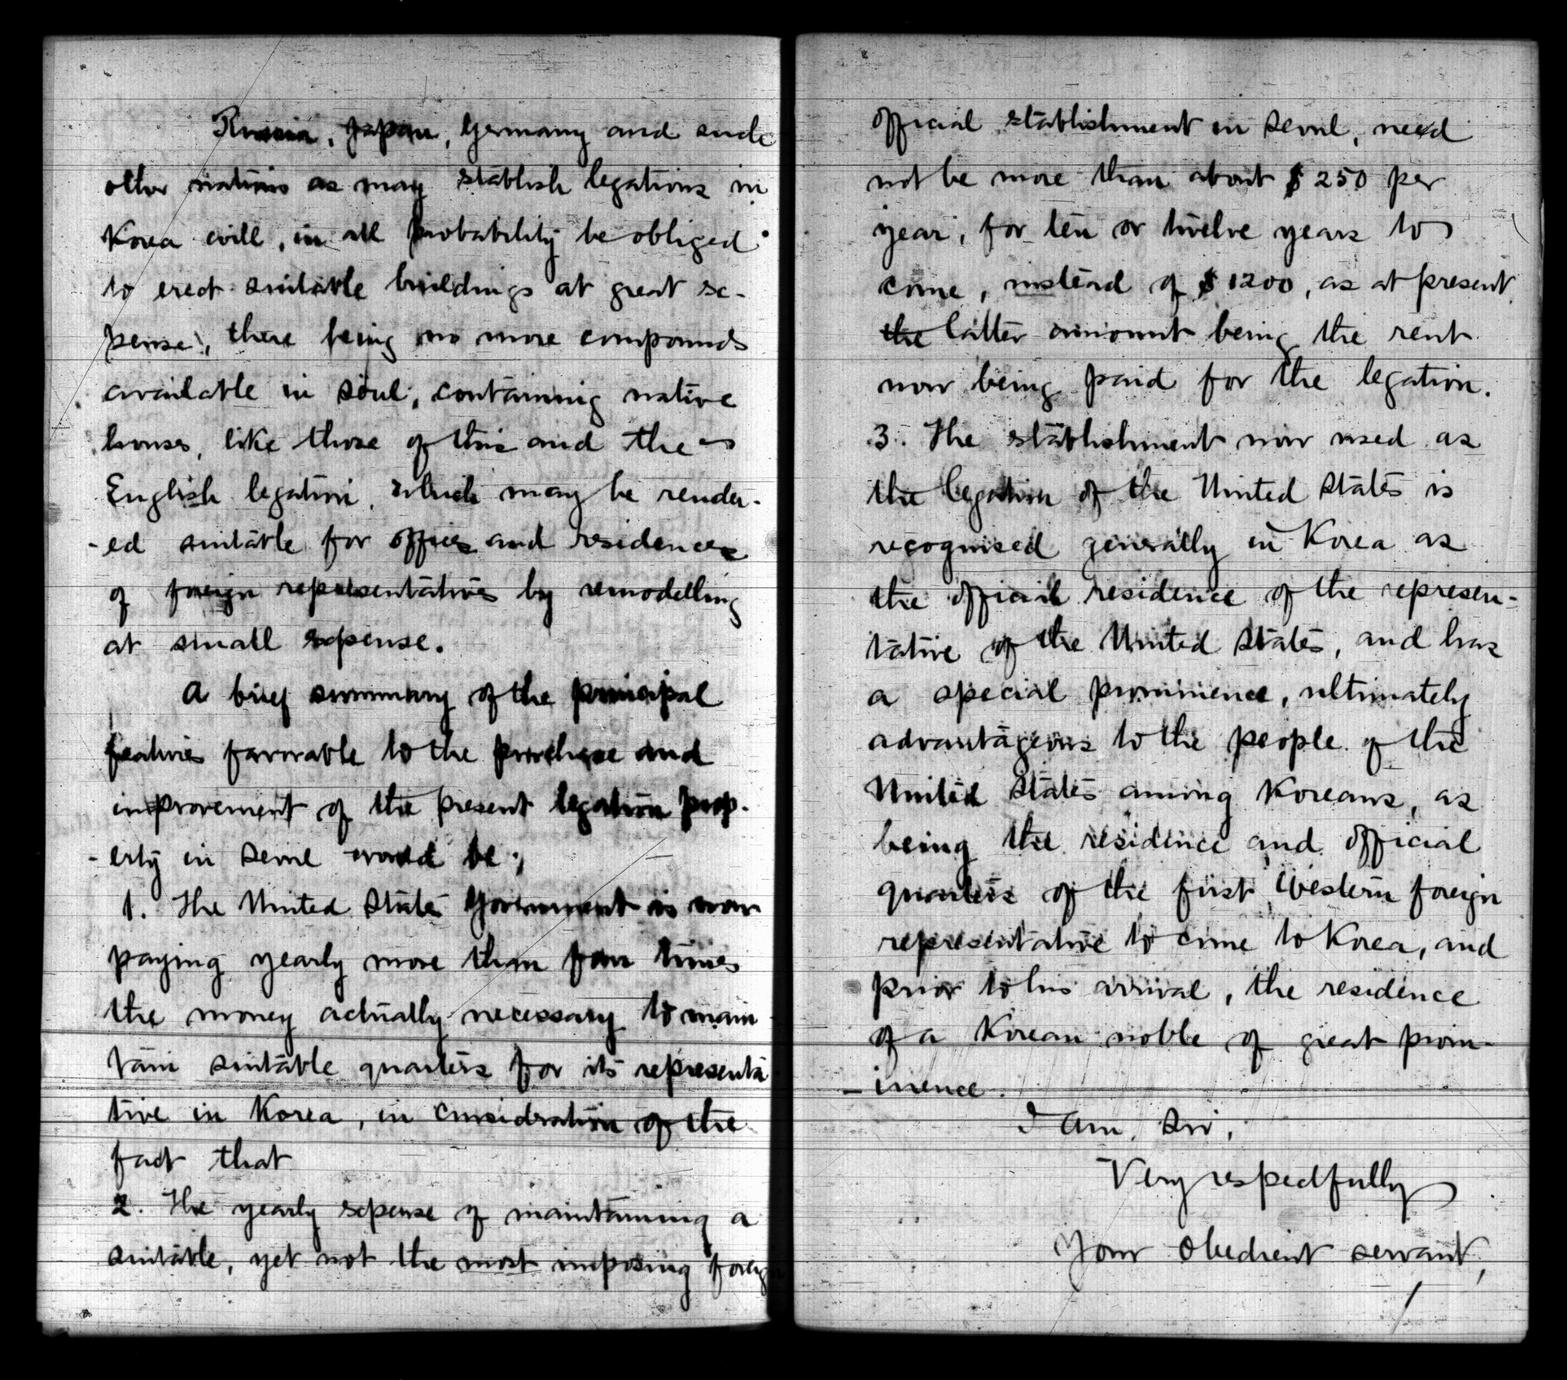 Russia, Japan, Germany and such
other nations as may establish legations in
Korea will, in all probability be obliged
to erect suitable buildings at great ex-
pense, there being no more compounds
available in Soul, containing native
houses, like those of this and the
English legation, which may be render-
-ed suitable for offices and residences
of foreign representatives by remodelling
at small expense.
A brief summary of the principal
features favorable to the purchase and
improvement of the present legation prop-
-erty in Seoul would be;
1. The United States Government is now
paying yearly more than four times
the money actually necessary to main
tain suitable quarters for its representa
tive in Korea, in consideration of the
fact that
2. The yearly expense of maintaining a
suitable, yet not the most imposing foreign
official establishment in Seoul, need
not be more than about $250 per
year, for ten or twelve years to
come, instead of $1200, as at present
the latter amount being the rent
now being paid for the legation.
3. The establishment now used as
the legation of the United States is
recognised generally in Korea as
the official residence of the represen-
tative of the United States, and has
a special prominence, ultimately
advantageous to the people of the
United States among Koreans, as
being the residence and official
quarters of the first Western foreign
representative to come to Korea, and
prior to his arrival, the residence
of a Korean noble of great prom-
-inence.
I am, Sir,
Very respectfully
Your obedient servant,